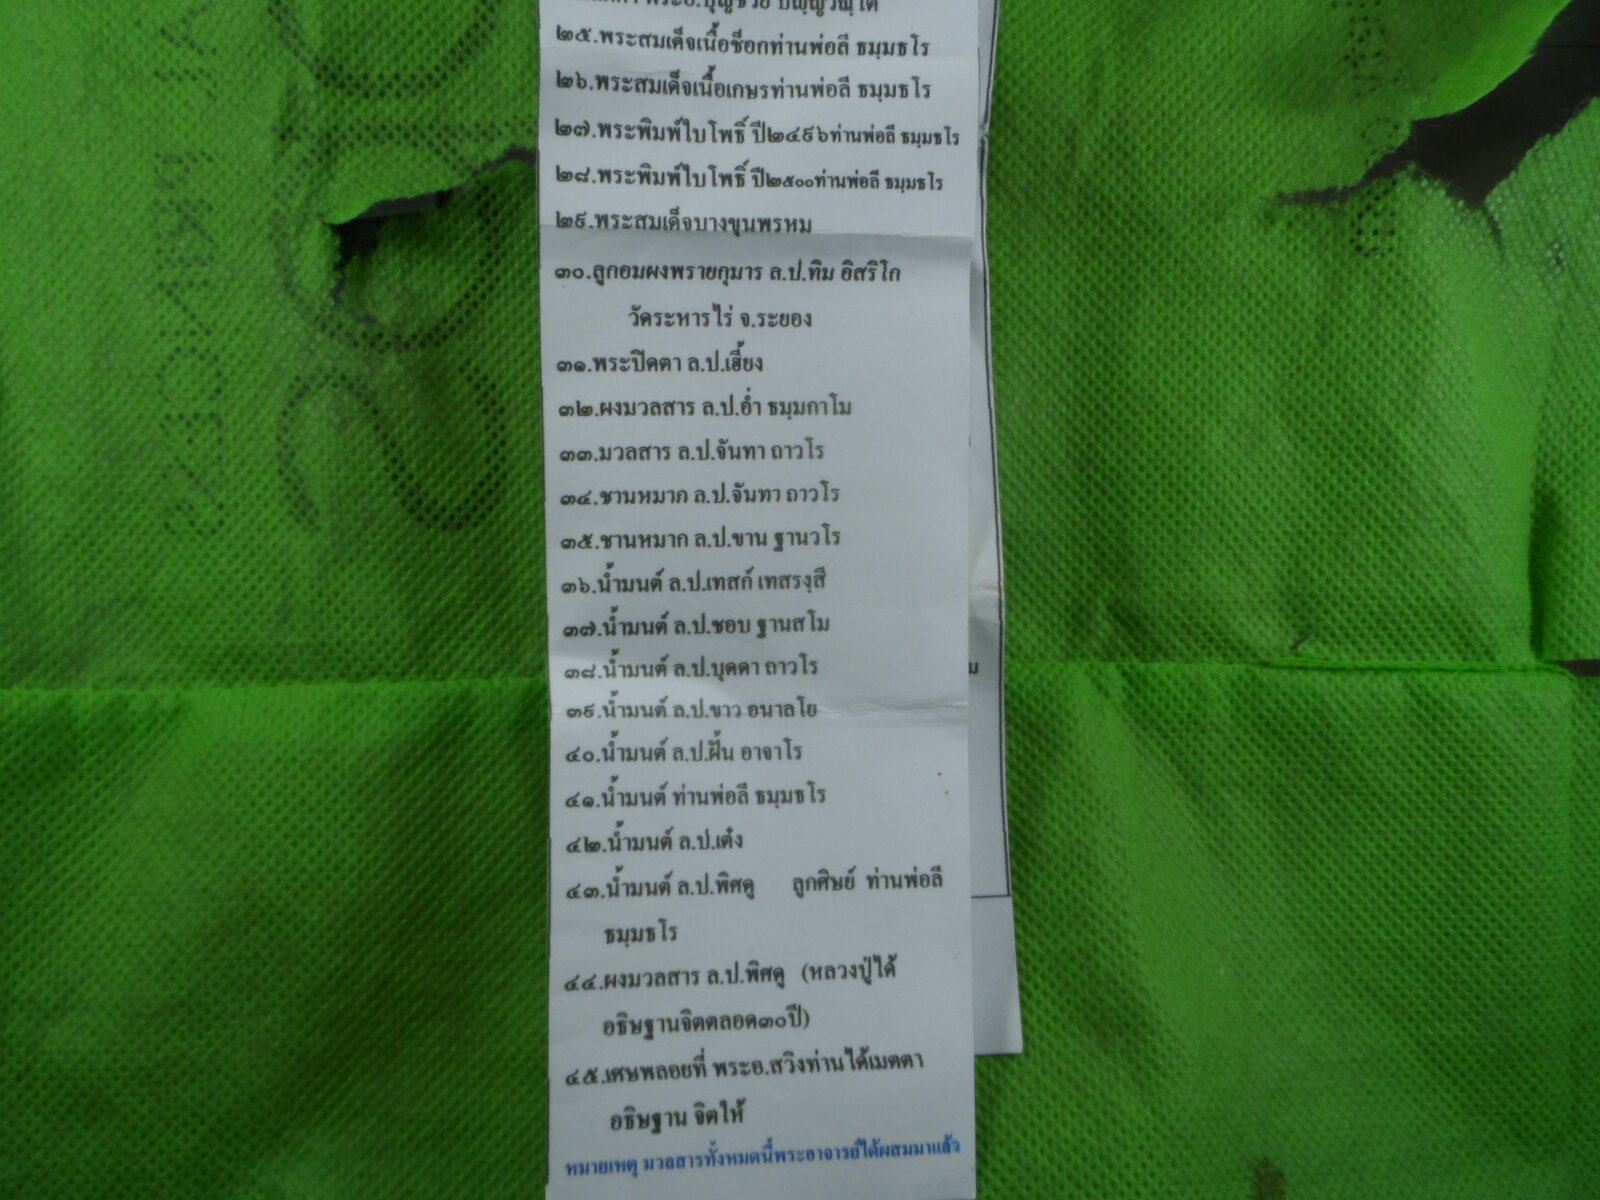 พระอ.บุญช่วย ปญฺญวนฺโต
๒๕.พระสมเด็จเนื้อช็อกท่านพ่อลี ธมฺมธโร
๒๖.พระสมเด็จเนื้อเกษรท่านพ่อลี ธมฺมธโร
๒๗.พระพิมพ์ใบโพธิ์ ปี๒๔๙๖ท่านพ่อลี ธมฺมธโร
๒๘.พระพิมพ์ใบโพธิ์ ปี๒๕๐๐ท่านพ่อลี ธมฺมธโร
๒๙.พระสมเด็จบางขุนพรหม
๓๐.ลูกอมผงพรายกุมาร ล.ป.ทิม อิสริโก
วัดระหารไร่ จ.ระยอง
๓๑.พระปิดตา ล.ป.เฮี้ยง
๓๒.ผงมวลสาร ล.ป.อ่ำ ธมฺมกาโม
๓๓.มวลสาร ล.ป.จันทา ถาวโร
๓๔.ชานหมาก ล.ป.จันทา ถาวโร
๓๕.ชานหมาก ล.ป.ขาน ฐานวโร
๓๖.น้ำมนต์ ล.ป.เทสก์ เทสรงฺสี
๓๗.น้ำมนต์ ล.ป.ชอบ ฐานสโม
๓๘.น้ำมนต์ ล.ป.บุดดา ถาวโร
๓๙.น้ำมนต์ ล.ป.ขาว อนาลโย
๔๐.น้ำมนต์ ล.ป.ฝั้น อาจาโร
๔๑.น้ำมนต์ ท่านพ่อลี ธมฺมธโร
๔๒.น้ำมนต์ ล.ป.เต๋ง
๔๓.น้ำมนต์ ล.ป.พิศดู ลูกศิษย์ ท่านพ่อลี
ธมฺมธโร
๔๔.ผงมวลสาร ล.ป.พิศดู (หลวงปู่ได้
อธิษฐานจิตตลอด๓๐ปี)
๔๕.เศษพลอยที่ พระอ.สวิงท่านได้เมตตา
อธิษฐาน จิตให้
หมายเหตุ มวลสารทั้งหมดนี้พระอาจารย์ได้ผสมมาแล้ว